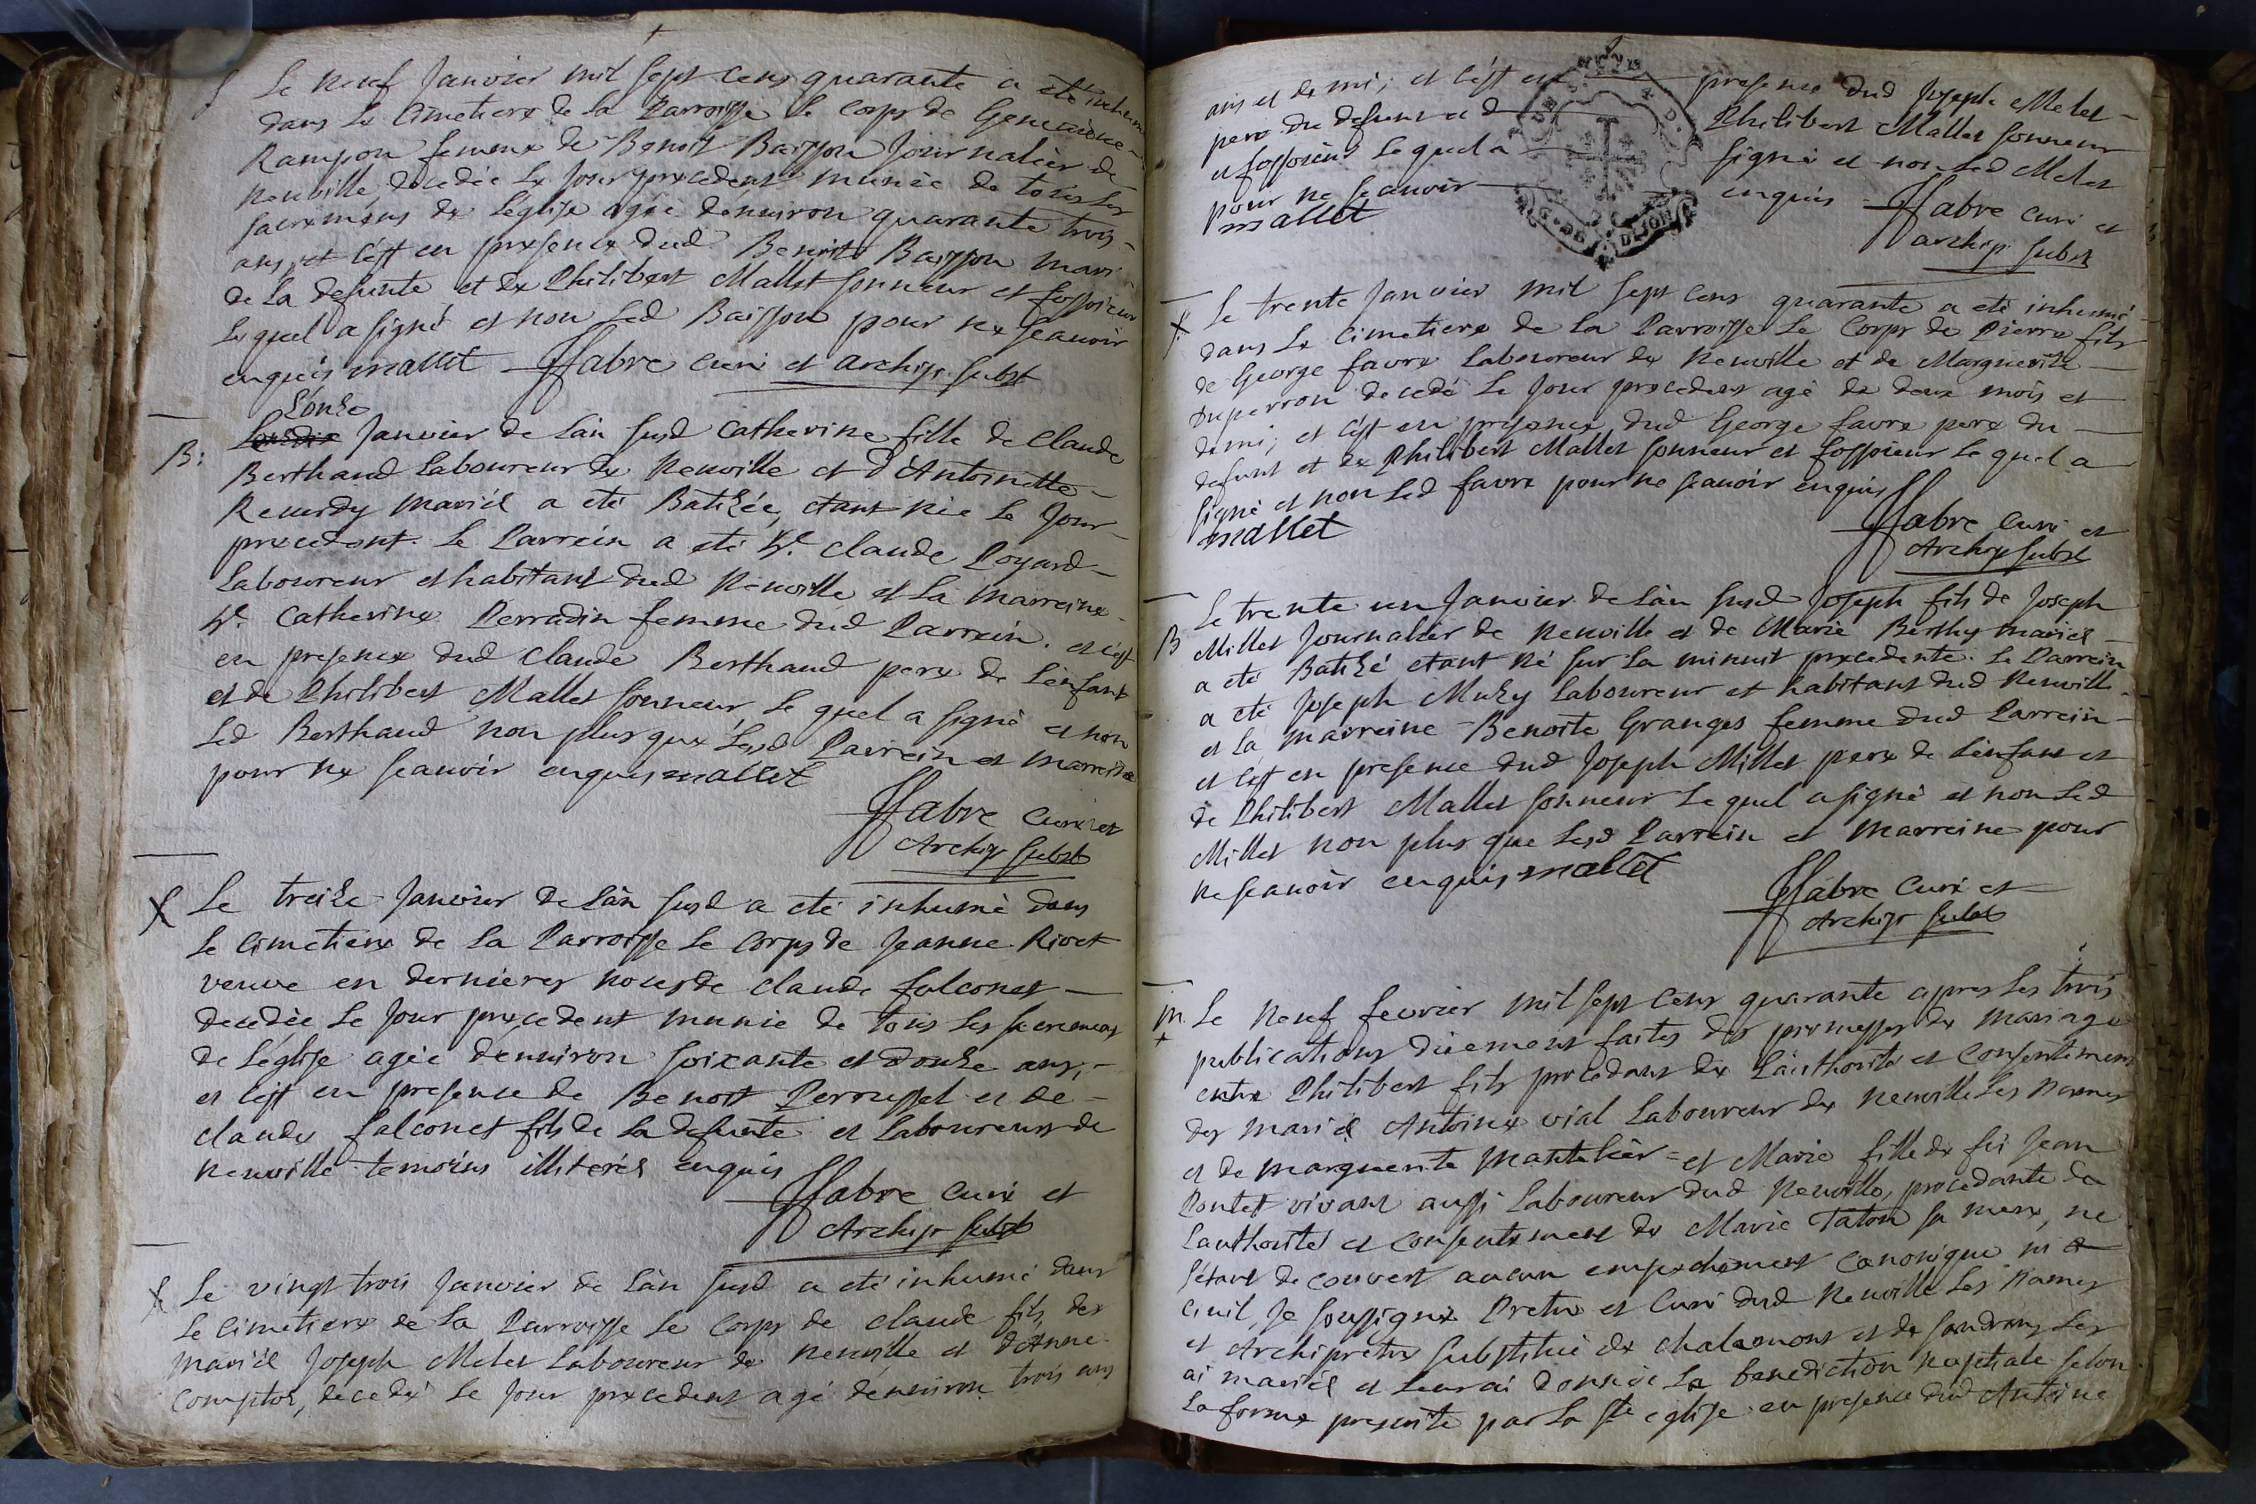 Le neuf Janvier mil sept cens quarante a eté inhumé
dans Le Cimetiere de La Parroisse Le Corps de Genevieve
Rampon femme de Benoit Baisson Journalier de
Neuville decedée Le Jour precedent munie de tous Les
sacremens de L'eglise agée d'environ quarante trois
ans, et c'est en presence dud Benoit Baisson mari
de La defunte et de Philibert Mallet sonneur et fossoieur
Lequel a signé et non Led Baisson pour ne sçavoir
enquis mallet Ffabre curé et archip. subst
L'onze
Janvier de L'an susd Catherine fille de Claude
B: Berthaud Laboureur de Neuville et d'Antoinette
Reverdy mariés a eté Batisée, etant née Le Jour
precedent. Le Parrein a eté hte Claude Poyard
Laboureur et habitant dud Neuville et La Marreine
hte Catherine Perradin femme dud Parrein. et c'est
en presence dud Claude Berthaud pere de L'enfant
et de Philibert Mallet sonneur Lequel a signé et non
Led Berthaud non plus que Lesd Parrein et Marreine
pour ne sçavoir enquis mallet
Ffabre curé et
Archip subst
Le treize Janvier de L'an susd a eté inhumé dans
Le Cimetiere de La Parroisse Le Corps de Jeanne Rivet
veuve en dernieres noces de Claude falconet
decedée Le Jour precedent munie de tous Les sacremens
de L'eglise agée d'environ soixante et douze ans,
et c'est en presence de Benoit Peroussel et de
Claude falconet fils de La defunte et Laboureurs de
Neuville temoins illiterés enquis
Ffabre curé et
Archip subst
Le vingt trois Janvier de L'an susd a eté inhumé dans
Le Cimetiere de La Parroisse Le Corps de Claude fils des
mariés Joseph Melet Laboureur de Neuville et d'Anne
Comptos, decedé Le Jour precedent agé d'environ trois ans
ans et demi; et c'est en presence dud Joseph Melet
pere du defunt et d Philibert Mallet sonneur
et fossoieur Lequel a signé et non Led Melet
pour ne sçavoir enquis Ffabre curé et
mallet archip. subst
Le trente Janvier mil sept cens quarante a eté inhumé
dans Le Cimetiere de La Parroisse Le Corps de Pierre fils
de George favre Laboureur de Neuville et de Marguerite
Duperron decedé Le Jour precedent agé de deux mois et
demi; et c'est en presence dud George favre pere du
defunt et de Philibert Mallet sonneur et fossoieur Lequel a
signé et non Led favre pour ne sçavoir enquis
mallet Ffabre curé et
Archip subst
Le trente un Janvier de L'an susd Joseph fils de Joseph
B Millet Journalier de Neuville et de Marie Berthy mariés
a eté Batisé etant né sur La minuit precedente. Le Parrein
a eté Joseph Muzy Laboureur et habitant dud Neuville
et La Marreine Benoite Granges femme dud Parrein
et c'est en presence dud Joseph Millet pere de L'enfant et
de Philibert Mallet sonneur Lequel a signé et non Led
Millet non plus que Lesd Parrein et Marreine pour
ne sçavoir enquis mallet
Ffabre curé et
Archip subst
m. Le neuf fevrier mil sept cens quarante apres Les trois
publications düement faites des promesses de mariage
entre Philibert fils procedant de L'authorité et consentement
des mariés Antoine vial Laboureur de Neuville Les Dames
et de Marguerite Mantelier = et Marie fille de fû Jean
Pontet vivant aussi Laboureur dud Neuville, procedante de
L'authorité et consentement de Marie Taton sa mere, ne
s'etant decouvert aucun empechement canonique ni
civil, Je soussigné Pretre et Curé dud Neuville Les Dames
et Archipretre substitué de Chalamont et de Sandrans Les
ai mariés et leur ai donnée La benediction nuptiale selon
La forme prescrite par La Ste eglise en presence dud Antoine